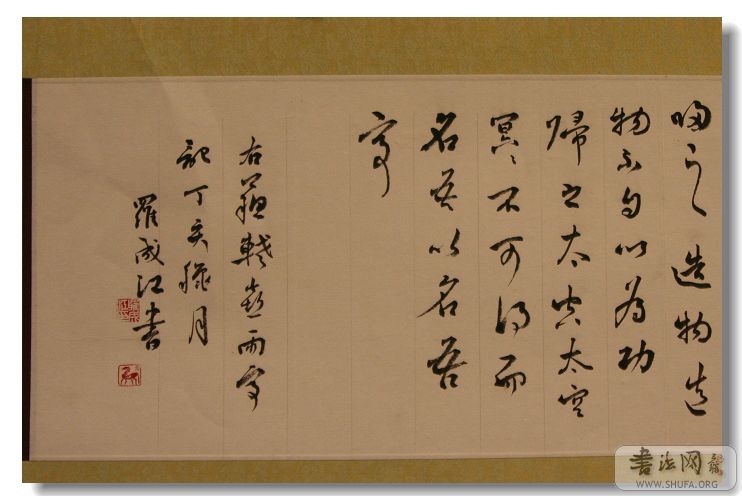 歸之造物造
物不自以為功
歸之太空太空
冥〻不可得而
名吾以名吾
亭
右蘇軾喜雨亭
記丁亥臘月
羅成江書
書法网
WWW.SHUFA.ORG